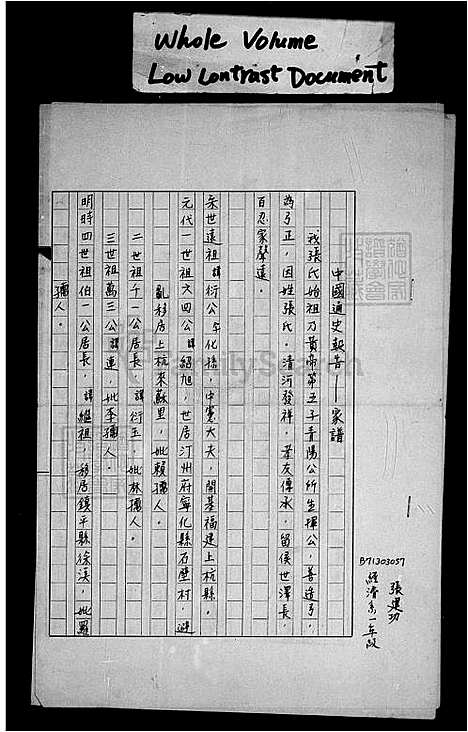 Whole Volume
Low Contrast Document
B71303057
張建功
經濟系一年級
中國通史報告——家譜
我張氏始祖乃黃帝第五子青陽公所生揮公，善造弓，
為弓正，因姓張氏。清河發祥，孝友傳承，留侯世澤長，
百忍家聲遠。
宋世遠祖諱衍公字化孫，中憲大夫，開基福建上杭縣。
元代一世祖六四公諱紹旭，世居汀州府寧化縣石壁村，避
亂移居上杭來蘇里，妣賴孺人。
二世祖千一公居長，諱衍玉，妣林孺人。
三世祖萬三公諱連，妣李孺人。
明時四世祖伯一公居長，諱繼祖，移居鎮平縣徐溪，妣羅
孺人。